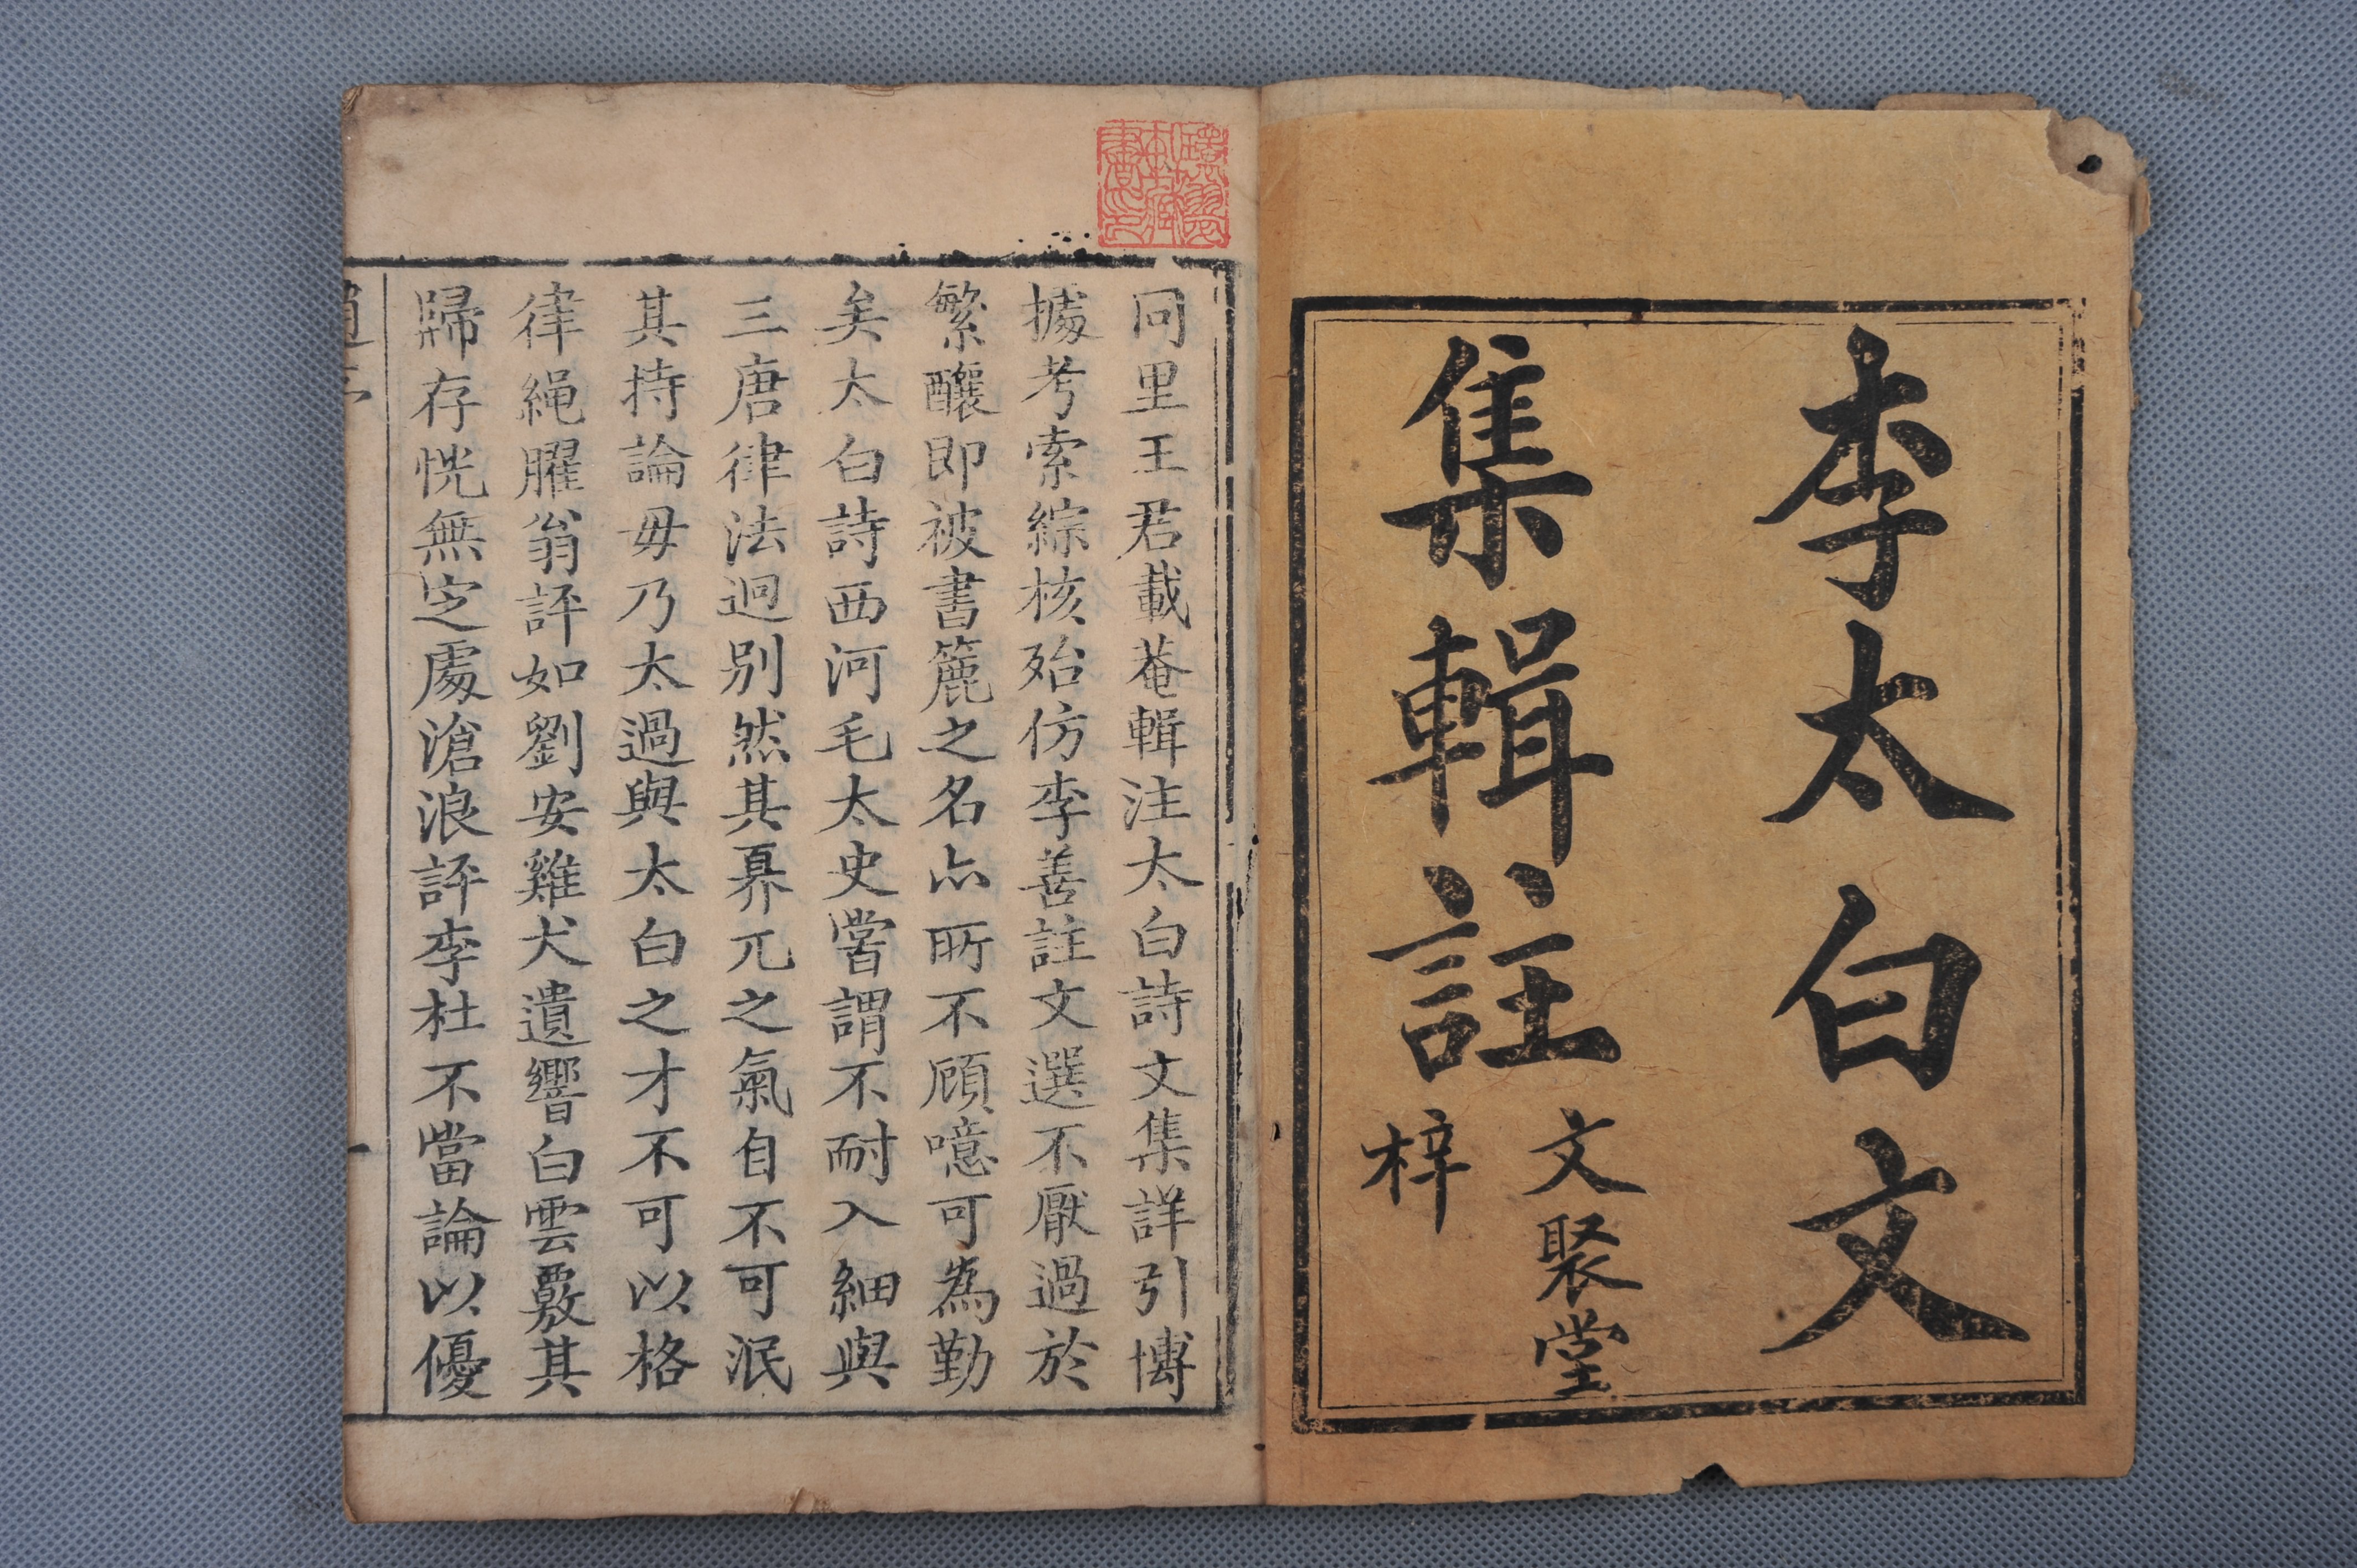 李太白文
集輯註
文聚堂
梓
同里王君載菴輯注太白詩文集詳引博
據考索綜核殆仿李善註文選不厭過於
繁釀即被書簏之名亦所不顧噫可為勤
矣太白詩西河毛太史嘗謂不耐入細與
三唐律法迥別然其昦兀之氣自不可泯
其持論毋乃太過與太白之才不可以格
律繩臞翁評如劉安雞犬遺響白雲覈其
歸存恍無定處滄浪評李杜不當論以優